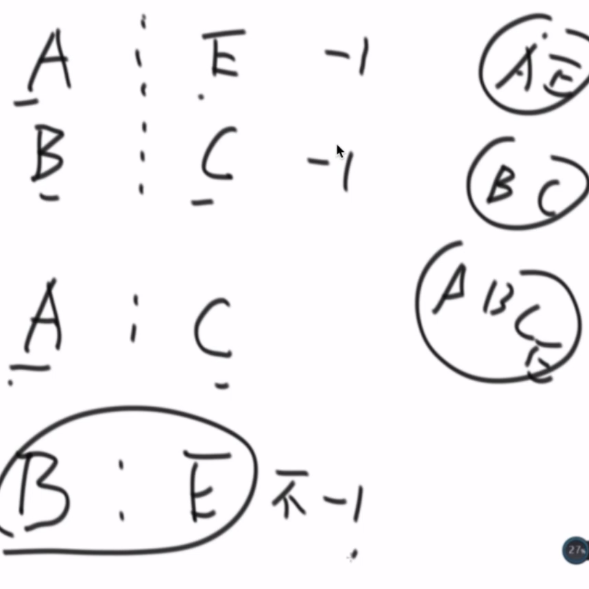 A : E -1
B : C -1
A : C
B : E 不 -1
A E
B C
A B C E
27%